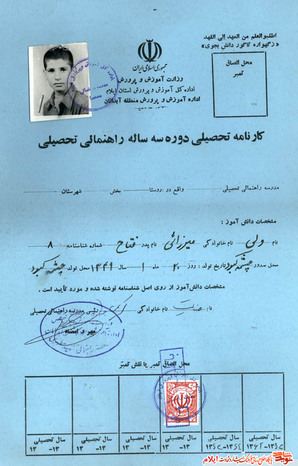 اطلبو العلم من المهد الی اللهد
«زگهواره تاگور دانش بجوی»
محل الصاق
تمبر
جمهوری اسلامی ایران
وزارت آموزش و پرورش
اداره کل آموزش و پرورش استان ایلام
اداره آموزش و پرورش منطقه آبدانان
کارنامه تحصیلی دوره سه ساله راهنمائی تحصیلی
مدرسه راهنمائی تحصیلی واقع در روستا بخش شهرستان
مشخصات دانش آموز :
نام ولی نام خانوادگی میرزائی نام پدر فتاح شماره شناسنامه ۸
محل صدور چشمه کبود تاریخ تولد : روز ۲۰ ماه ۱ سال ۱۳۴۹ محل تولد چشمه کبود
مشخصات دانش آموز از روی اصل شناسنامه نوشته شده و مورد تأیید است .
نام خانوادگی رئیس مدرسه راهنمائی تحصیلی
مهر و امضاء
محل الصاق تمبر یا نقش تمبر
سال تحصیلی سال تحصیلی سال تحصیلی سال تحصیلی سال تحصیلی سال تحصیلی